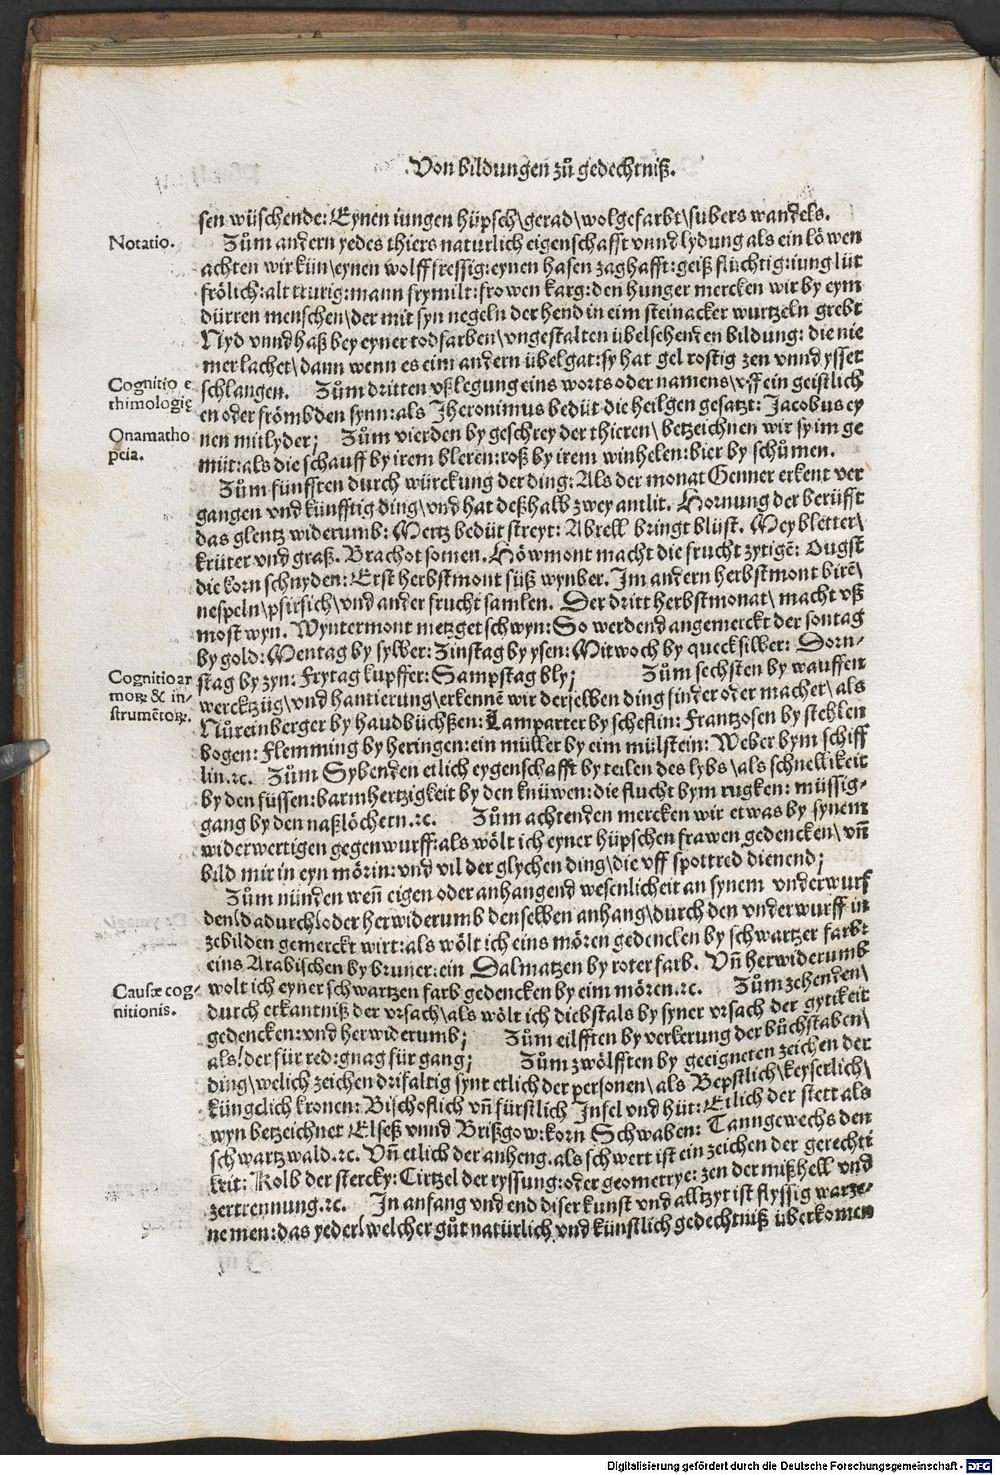 Von bildungen zů gedechtniß.
sen wüschende: Eynen iungen hüpsch\gerad\wolgefarbt\subers wandels.
Notatio.
Zům andern yedes thiers naturlich eigenschafft vnnd lydung als ein löwen
achten wir kün\eynen wolff fressig: eynen hasen zaghafft: geiß fluchtig: iung lüt
frölich: alt trurig: mann frymilt: frowen karg: den hunger mercken wir by eym
dürren menschen\der mit syn negeln der hend in eim steinacker wurtzeln grebt
Nyd vnnd haß bey eyner todfarben\vngestalten übelsehenden bildung: die nie
mer lachet\dann wenn es eim andern übelgat: sy hat gel rostig zen vnnd ysset
Cognitio e
thimologię
schlangen. Zům dritten vßlegung eins worts oder namens\vff ein geistlich
en oder frömbden synn: als Jheronimus bedüt die heilgen gesatzt: Jacobus ey
Onamatho
peia.
nen mitlyder; Zům vierden by geschrey der thieren\betzeichnen wir sy im ge
müt: als die schauff by irem bleren: roß by irem winhelen: bier by schůmen.
Zům fünfften durch würckung der ding: Als der monat Genner erkent ver
gangen vnd künfftig ding\vnd hat deßhalb zwey antlit. Hornung der berüfft
das glentz widerumb: Mertz bedüt streyt: Abrell bringt blüst. Mey bletter\
krüter vnd graß. Brachot somen. Höwmont macht die frucht zytigē: Ougst
die korn schnyden: Erst herbstmont süß wynber. Im andern herbstmont birē\
nespeln\pfirsich\vnd ander frucht samlen. Der dritt herbstmonat\macht vß
most wyn. Wyntermont metzget schwyn: So werdend angemerckt der sontag
by gold: Mentag by sylber: Zinstag by ysen: Mitwoch by quecksilber: Dorn-
Cognitio ar
moꝝ & in-
strumētoꝝ.
stag by zyn: Frytag kupffer: Sampstag bly; Zům sechsten by wauffen
werckzüg\vnd hantierung\erkennē wir derselben ding finder oder macher\als
Nůreinberger by haudbüchßen: Lamparter by scheflin: Frantzosen by stehlen
bogen: Flemming by heringen: ein müller by eim mülstein: Weber bym schiff
lin. ⁊c. Zům Sybenden etlich eygenschafft by teilen des lybs\als schnellikeit
by den füssen: barmhertzigkeit by den knüwen: die flucht bym rugken: müssig-
gang by den naßlöchern. ⁊c. Zům achtenden mercken wir etwas by synem
widerwertigen gegenwurff: als wölt ich eyner hüpschen frawen gedencken\vn̄
bild mir in eyn mörin: vnd vil der glychen ding\die vff spottred dienend;
Zům nünden wen̄ eigen oder anhangend wesenlicheit an synem vnderwurf
den\dadurch\oder herwiderumb denselben anhang\durch den vnderwurff in
zebilden gemerckt wirt: als wölt ich eins mören gedencken by schwartzer farb:
eins Arabischen by bruner: ein Dalmatzen by roter farb. Vn̄ herwiderumb
Causæ cog-
nitionis.
wolt ich eyner schwartzen farb gedencken by eim mören. ⁊c. Zům zehenden\
durch erkantniß der vrsach\als wölt ich diebstals by syner vrsach der gytikeit
gedencken: vnd herwiderumb; Zům eilfften by verkerung der bůchstaben\
als\der für red: gnag für gang; Zům zwölfften by geeigneten zeichen der
ding\welich zeichen drifaltig synt etlich der personen\als Bepstlich\keyserlich\
küngelich kronen: Bischoflich vn̄ fürstlich Infel vnd hüt: Etlich der stett als
wyn betzeichnet Elseß vnnd Brißgow: korn Schwaben: Tanngewechs den
schwartzwald. ⁊c. Vn̄ etlich der anheng. als schwert ist ein zeichen der gerechti
keit: Kolb der stercky: Cirtzel der ryssung: oder geometrye: zen der mißhell vnd
zertrennung. ⁊c. In anfang vnd end diser kunst vnd alltzyt ist flyssig warze-
nemen: das yeder\welcher gůt natürlich vnd künstlich gedechtniß überkomen
Digitalisierung gefördert durch die Deutsche Forschungsgemeinschaft - DFG